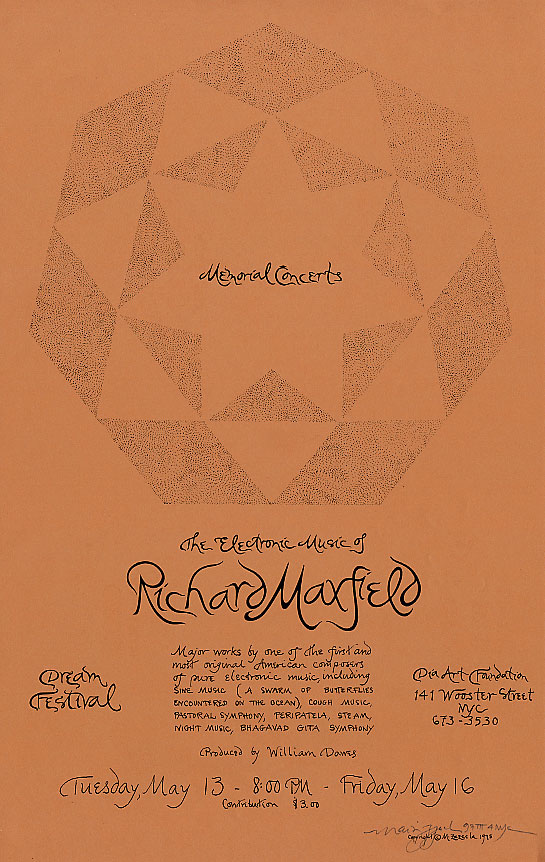 Memorial Concerts
The Electronic Music of
Richard Maxfield
Major works by one of the first and
most original American composers
of pure electronic music, including
SINE MUSIC (A SWARM OF BUTTERFLIES
ENCOUNTERED ON THE OCEAN), COUGH MUSIC,
PASTORAL SYMPHONY, PERIPATEIA, STEAM,
NIGHT MUSIC, BHAGAVAD GITA SYMPHONY
Dream
Festival
Dia Art Foundation
141 Wooster Street
NYC
673-3530
Produced by William Dawes
Tuesday, May 13 - 8:00 PM - Friday, May 16
Contribution $3.00
Copyright © M. Zazeela